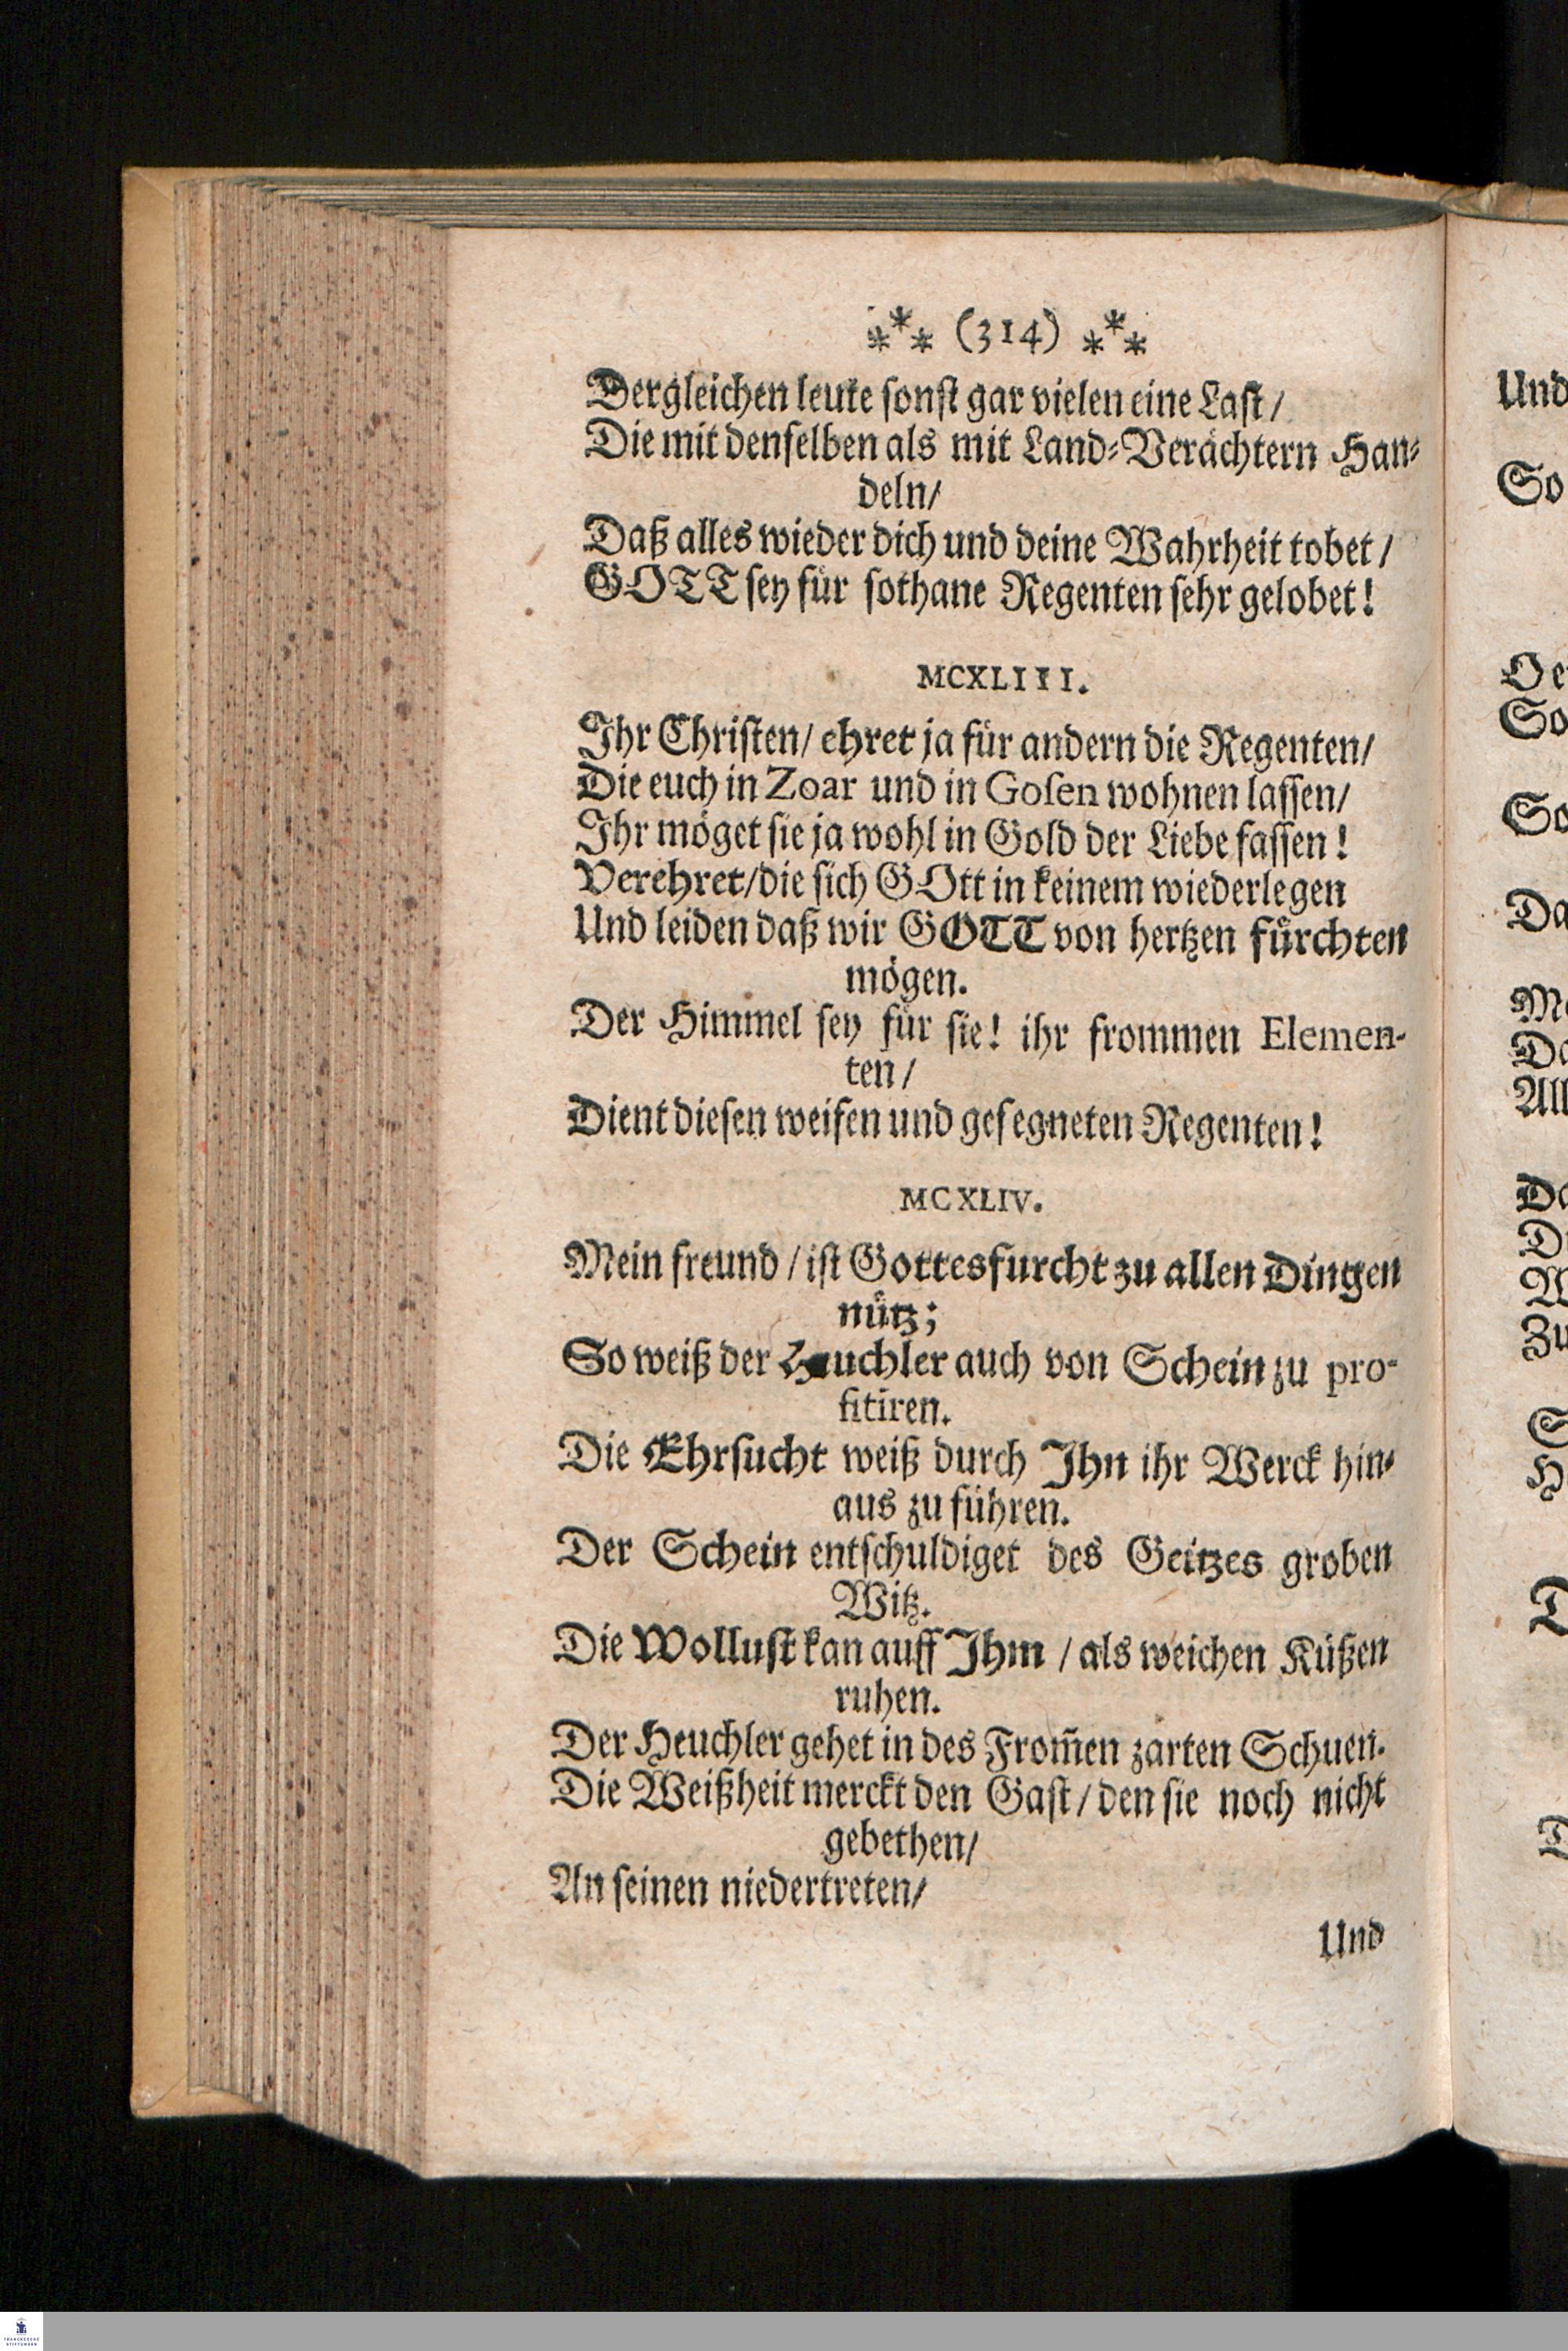 ⁂ (314) ⁂
Dergleichen leute sonst gar vielen eine Last/
Die mit denselben als mit Land-Verächtern Han-
deln/
Daß alles wieder dich und deine Wahrheit tobet/
GOTT sey für sothane Regenten sehr gelobet!
MCXLIII.
Ihr Christen/ ehret ja für andern die Regenten/
Die euch in Zoar und in Gosen wohnen lassen/
Ihr möget sie ja wohl in Gold der Liebe fassen!
Verehret/die sich GOtt in keinem wiederlegen
Und leiden daß wir GOTT von hertzen fürchten
mögen.
Der Himmel sey für sie! ihr frommen Elemen-
ten/
Dient diesen weisen und gesegneten Regenten!
MCXLIV.
Mein freund/ist Gottesfurcht zu allen Dingen
nütz;
So weiß der Heuchler auch von Schein zu pro-
fitiren.
Die Ehrsucht weiß durch Ihn ihr Werck hin-
aus zu führen.
Der Schein entschuldiget des Geitzes groben
Witz.
Die Wollust kan auff Ihm / als weichen Küßen
ruhen.
Der Heuchler gehet in des From̃en zarten Schuen.
Die Weißheit merckt den Gast/den sie noch nicht
gebethen/
An seinen niedertreten/
Und
Und
So
So
So
Da
All
Zu
FRANCKESCHE
STIFTUNGEN